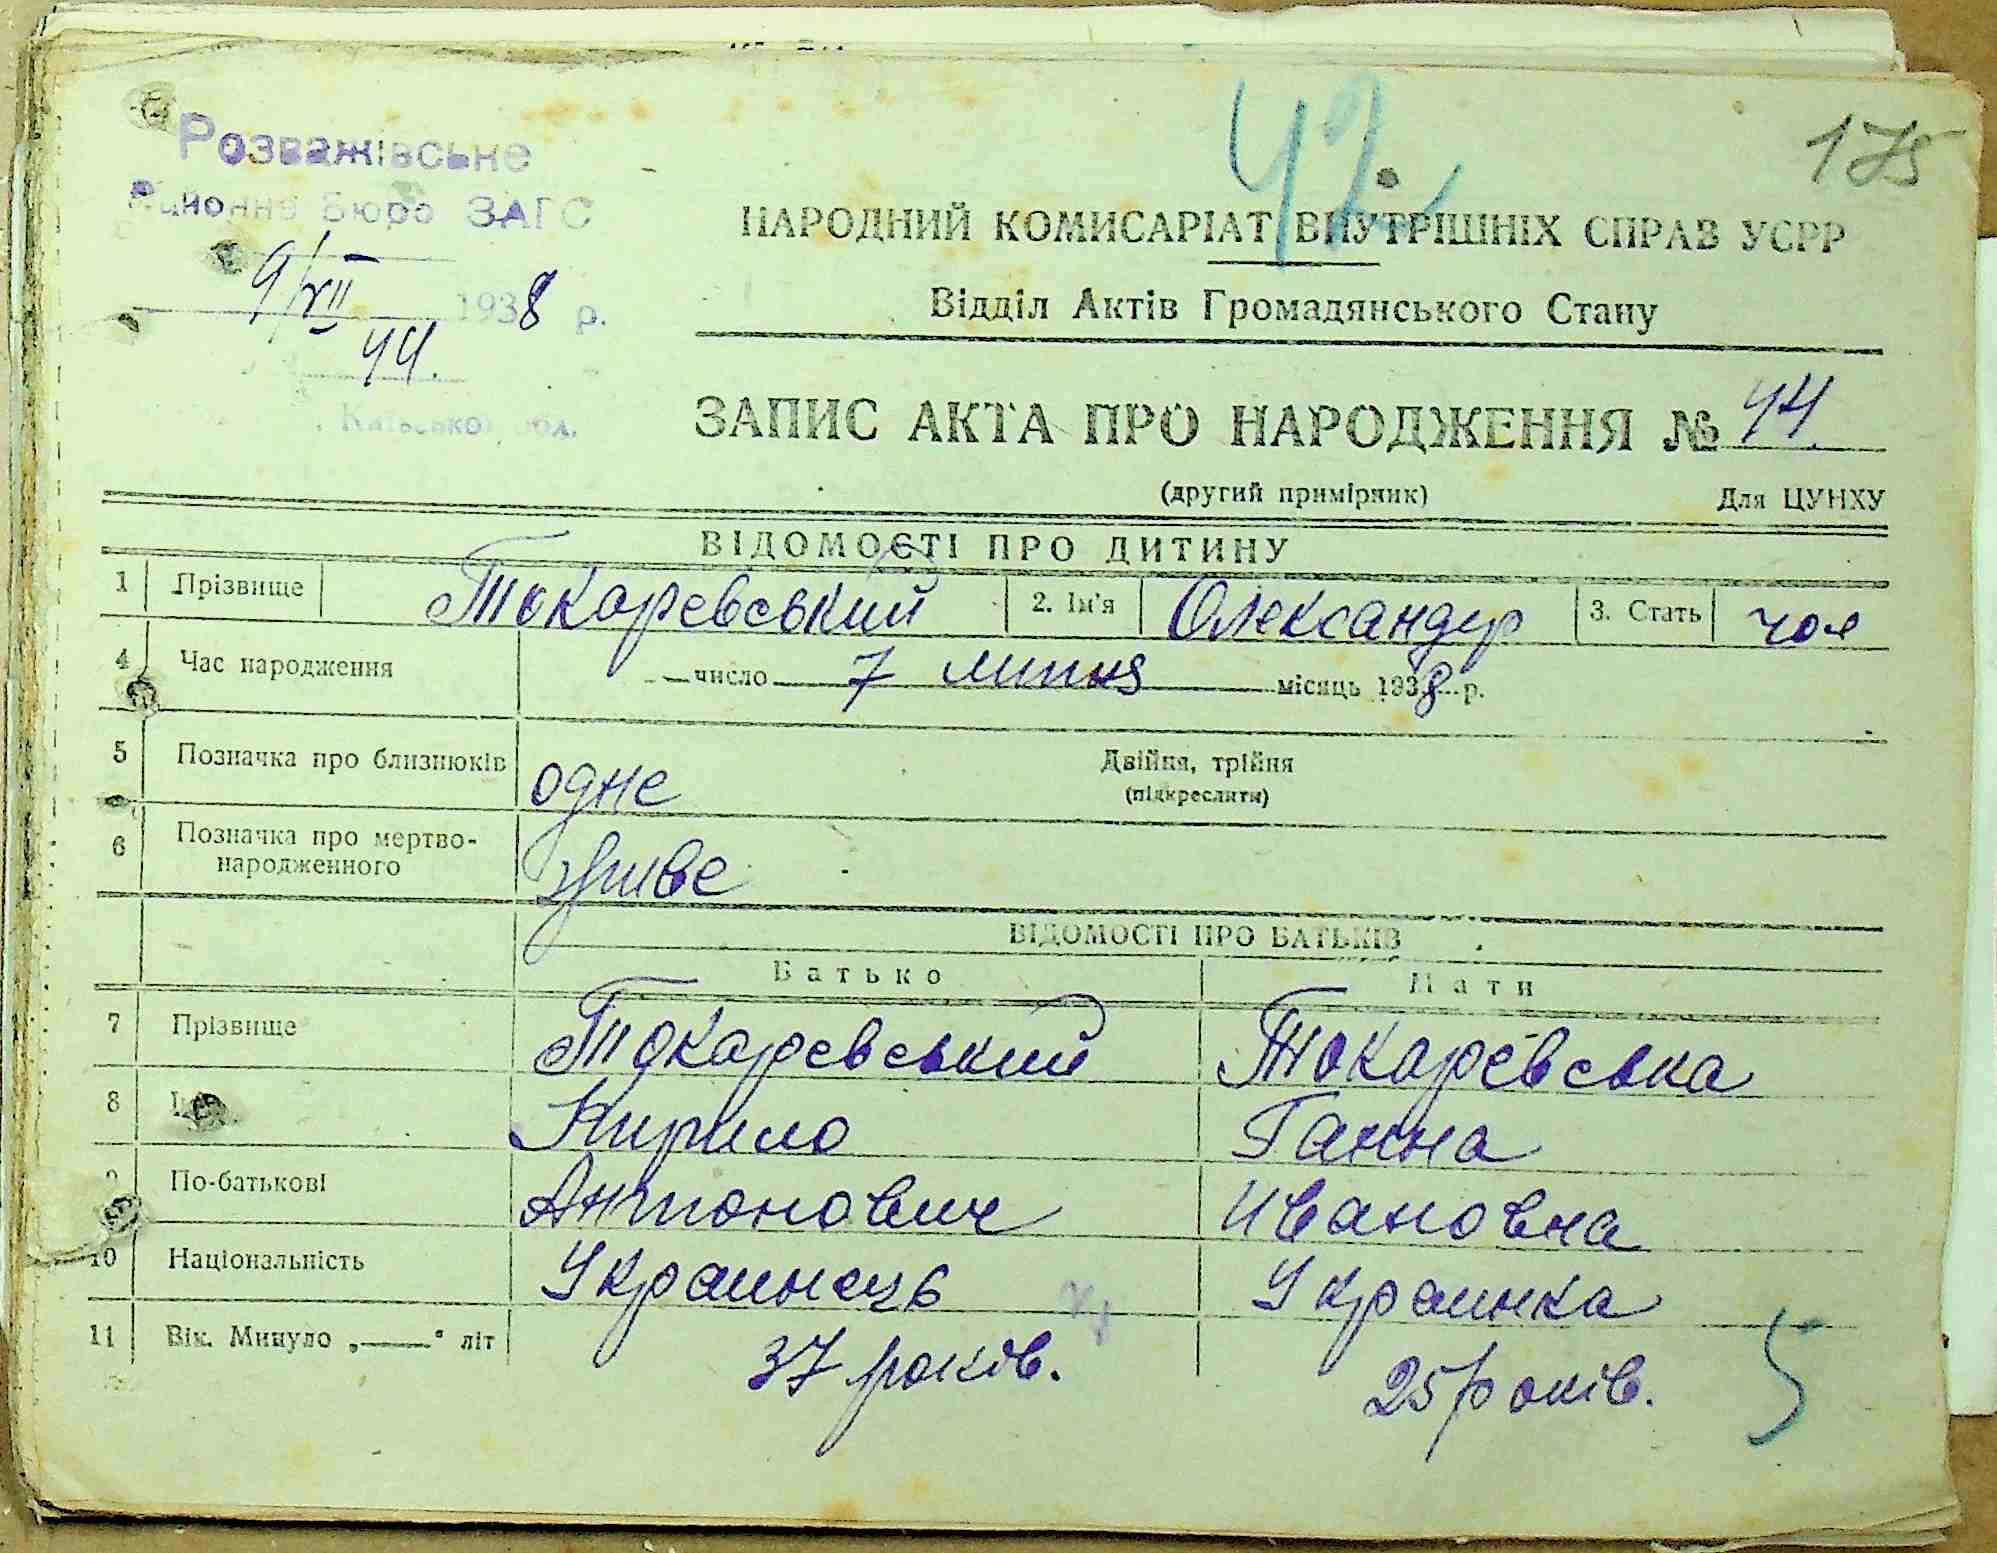 42
175
Розважівське
Районне Бюро ЗАГС
9/VII 1938 р.
44.
Київської обл.
НАРОДНИЙ КОМИСАРІАТ ВНУТРІШНІХ СПРАВ УСРР
Відділ Актів Громадянського Стану
ЗАПИС АКТА ПРО НАРОДЖЕННЯ № 44.
(другий примірник) Для ЦУНХУ
ВІДОМОСТІ ПРО ДИТИНУ
1 Прізвище Токаревський 2. Ім'я Олександер 3. Стать чол
4 Час народження число 7 липня місяць 1938 р.
5 Позначка про близнюків одне Двійня, трійня
(підкреслити)
6 Позначка про мертво-
народженного живе
ВІДОМОСТІ ПРО БАТЬКІВ
Батько Мати
7 Прізвище Токаревський Токаревська
8 Кирило Ганна
По-батькові Антонович Ивановна
10 Національність Украинець Украинка
11 Вік. Минуло „——" літ 37 років. 25 років.
5